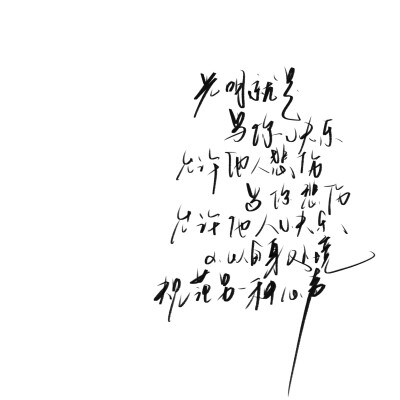 光明就是
当你快乐
允许他人悲伤
当你悲伤
允许他人快乐、
不以自身处境
规范另一种心声